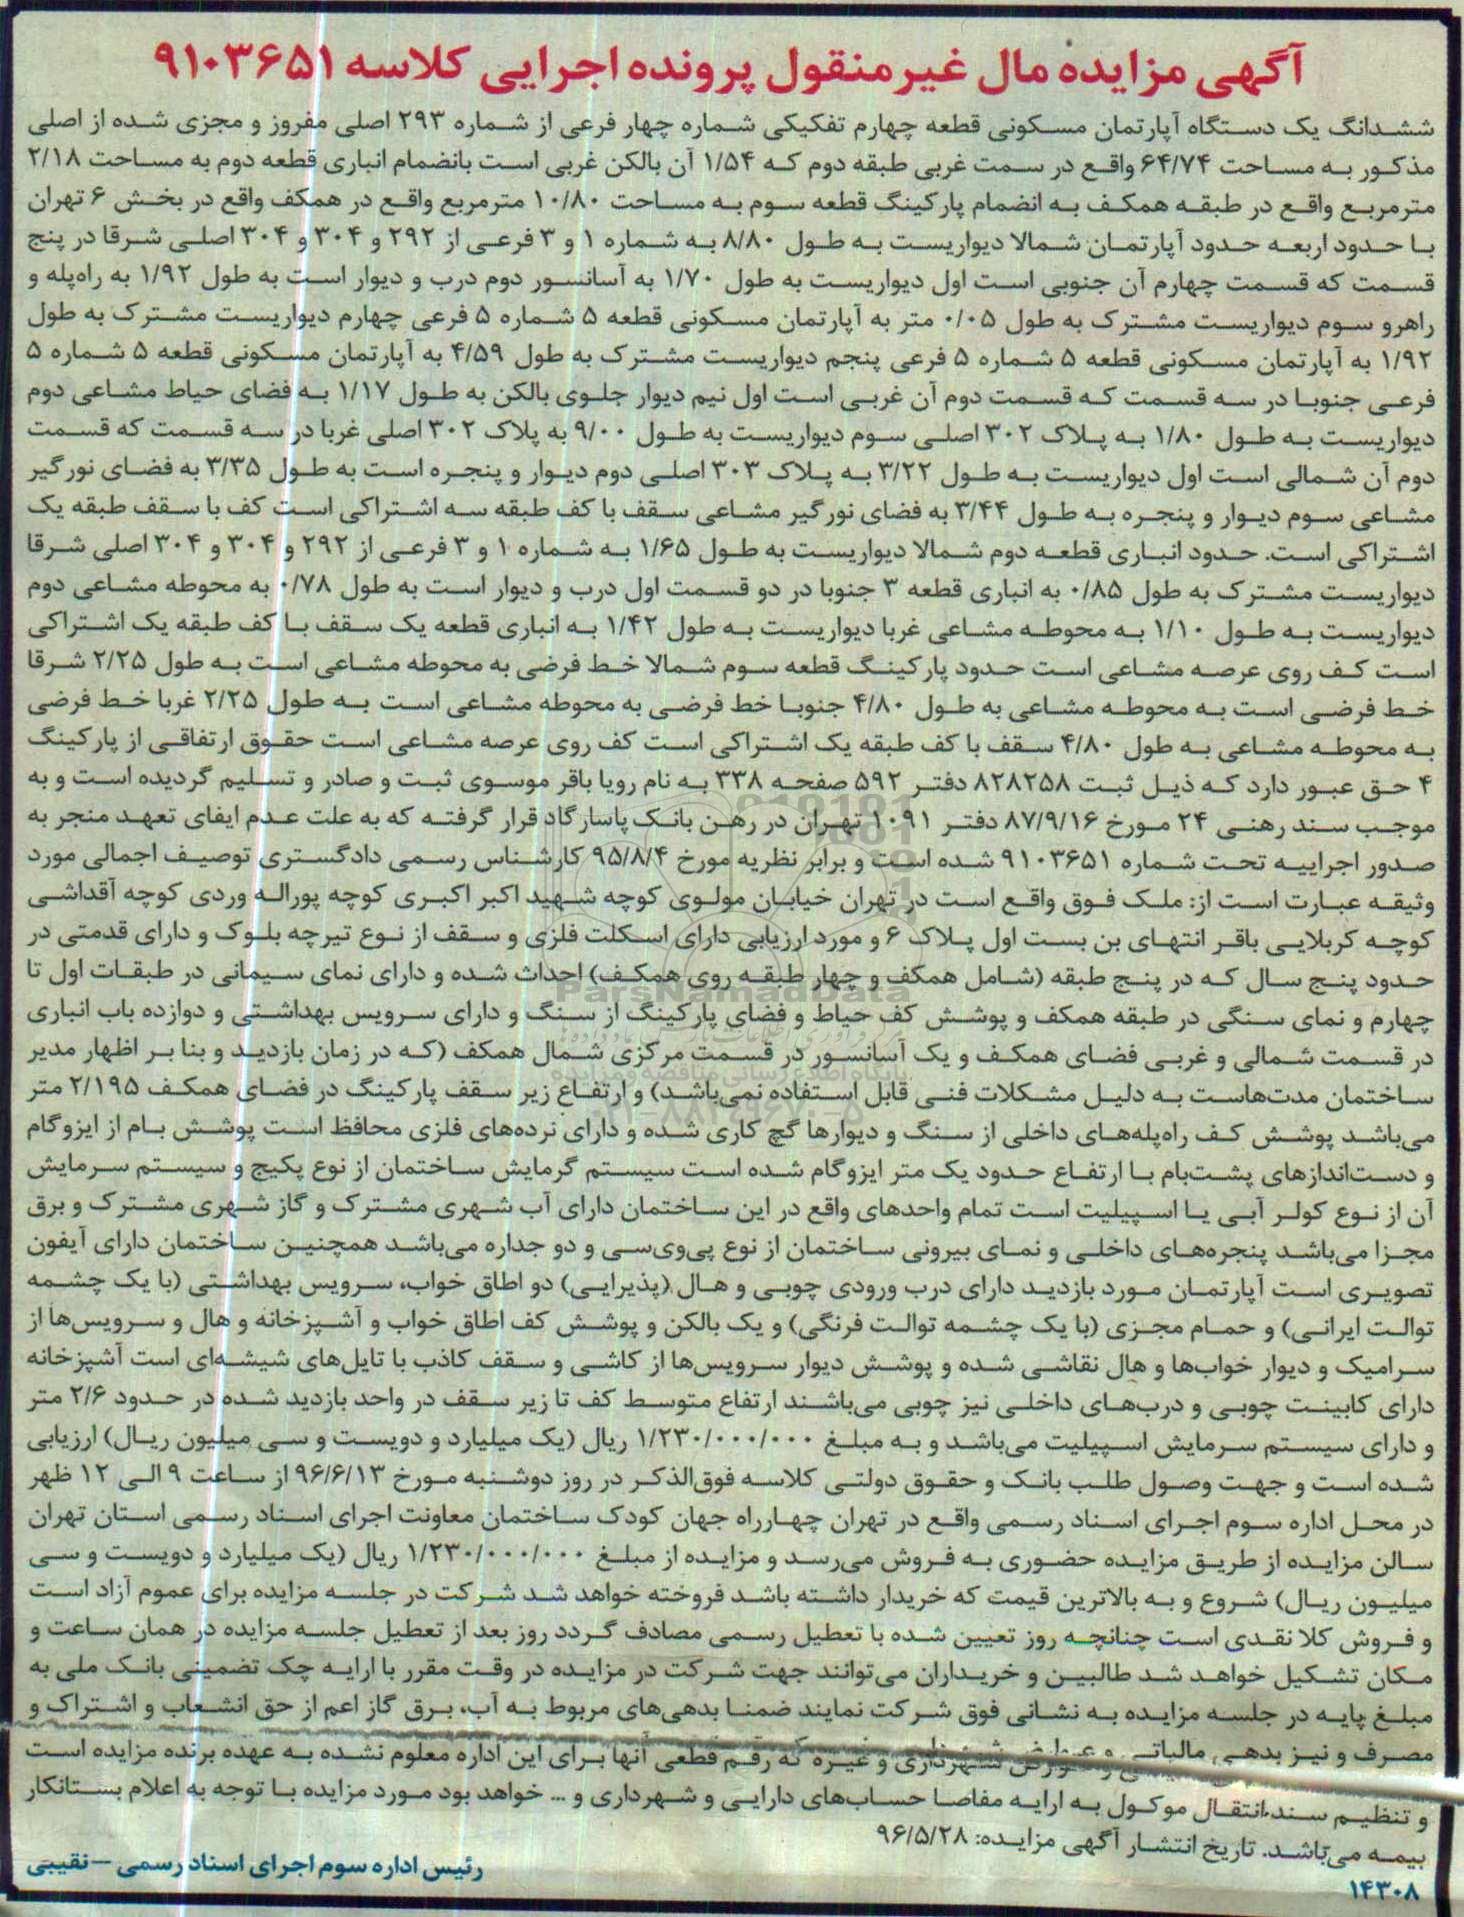 آگهی مزایده مال غیرمنقول پرونده اجرایی کلاسه ۹۱۰۳۶۵۱
ششدانگ یک دستگاه آپارتمان مسکونی قطعه چهارم تفکیکی شماره چهار فرعی از شماره ۲۹۳ اصلی مفروز و مجزی شده از اصلی
مذکور به مساحت ۶۴/۷۴ واقع در سمت غربی طبقه دوم که ۱/۵۴ آن بالکن غربی است بانضمام انباری قطعه دوم به مساحت ۲/۱۸
مترمربع واقع در طبقه همکف به انضمام پارکینگ قطعه سوم به مساحت ۱۰/۸۰ مترمربع واقع در همکف واقع در بخش ۶ تهران
با حدود اربعه حدود آپارتمان شمالا دیواریست به طول ۸/۸۰ به شماره ۱ و ۳ فرعی از ۲۹۲ و ۳۰۴ و ۳۰۴ اصلی شرقا در پنج
قسمت که قسمت چهارم آن جنوبی است اول دیواریست به طول ۱/۷۰ به آسانسور دوم درب و دیوار است به طول ۱/۹۲ به راه‌پله و
راهرو سوم دیواریست مشترک به طول ۰/۰۵ متر به آپارتمان مسکونی قطعه ۵ شماره ۵ فرعی چهارم دیواریست مشترک به طول
۱/۹۲ به آپارتمان مسکونی قطعه ۵ شماره ۵ فرعی پنجم دیواریست مشترک به طول ۴/۵۹ به آپارتمان مسکونی قطعه ۵ شماره ۵
فرعی جنوبا در سه قسمت که قسمت دوم آن غربی است اول نیم دیوار جلوی بالکن به طول ۱/۱۷ به فضای حیاط مشاعی دوم
دیواریست به طول ۱/۸۰ به پلاک ۳۰۲ اصلی سوم دیواریست به طول ۹/۰۰ به پلاک ۳۰۲ اصلی غربا در سه قسمت که قسمت
دوم آن شمالی است اول دیواریست به طول ۳/۲۲ به پلاک ۳۰۳ اصلی دوم دیوار و پنجره است به طول ۳/۳۵ به فضای نورگیر
مشاعی سوم دیوار و پنجره به طول ۳/۴۴ به فضای نورگیر مشاعی سقف با کف طبقه سه اشتراکی است کف با سقف طبقه یک
اشتراکی است. حدود انباری قطعه دوم شمالا دیواریست به طول ۱/۶۵ به شماره ۱ و ۳ فرعی از ۲۹۲ و ۳۰۴ و ۳۰۴ اصلی شرقا
دیواریست مشترک به طول ۰/۸۵ به انباری قطعه ۳ جنوبا در دو قسمت اول درب و دیوار است به طول ۰/۷۸ به محوطه مشاعی دوم
دیواریست به طول ۱/۱۰ به محوطه مشاعی غربا دیواریست به طول ۱/۴۲ به انباری قطعه یک سقف با کف طبقه یک اشتراکی
است کف روی عرصه مشاعی است حدود پارکینگ قطعه سوم شمالا خط فرضی به محوطه مشاعی است به طول ۲/۲۵ شرقا
خط فرضی است به محوطه مشاعی به طول ۴/۸۰ جنوبا خط فرضی به محوطه مشاعی است به طول ۲/۲۵ غربا خط فرضی
به محوطه مشاعی به طول ۴/۸۰ سقف با کف طبقه یک اشتراکی است کف روی عرصه مشاعی است حقوق ارتفاقی از پارکینگ
۴ حق عبور دارد که ذیل ثبت ۸۲۸۲۵۸ دفتر ۵۹۲ صفحه ۳۳۸ به نام رویا باقر موسوی ثبت و صادر و تسلیم گردیده است و به
موجب سند رهنی ۲۴ مورخ ۸۷/۹/۱۶ دفتر ۱۰۹۱ تهران در رهن بانک پاسارگاد قرار گرفته که به علت عدم ایفای تعهد منجر به
صدور اجراییه تحت شماره ۹۱۰۳۶۵۱ شده است و برابر نظریه مورخ ۹۵/۸/۴ کارشناس رسمی دادگستری توصیف اجمالی مورد
وثیقه عبارت است از: ملک فوق واقع است در تهران خیابان مولوی کوچه شهید اکبر اکبری کوچه پوراله وردی کوچه آقداشی
کوچه کربلایی باقر انتهای بن بست اول پلاک ۶ و مورد ارزیابی دارای اسکلت فلزی و سقف از نوع تیرچه بلوک و دارای قدمتی در
حدود پنج سال که در پنج طبقه (شامل همکف و چهار طبقه روی همکف) احداث شده و دارای نمای سیمانی در طبقات اول تا
چهارم و نمای سنگی در طبقه همکف و پوشش کف حیاط و فضای پارکینگ از سنگ و دارای سرویس بهداشتی و دوازده باب انباری
در قسمت شمالی و غربی فضای همکف و یک آسانسور در قسمت مرکزی شمال همکف (که در زمان بازدید و بنا بر اظهار مدیر
ساختمان مدت‌هاست به دلیل مشکلات فنی قابل استفاده نمی‌باشد) و ارتفاع زیر سقف پارکینگ در فضای همکف ۲/۱۹۵ متر
می‌باشد پوشش کف راه‌پله‌های داخلی از سنگ و دیوارها گچ کاری شده و دارای نرده‌های فلزی محافظ است پوشش بام از ایزوگام
و دست‌اندازهای پشت‌بام با ارتفاع حدود یک متر ایزوگام شده است سیستم گرمایش ساختمان از نوع پکیج و سیستم سرمایش
آن از نوع کولر آبی یا اسپیلیت است تمام واحدهای واقع در این ساختمان دارای آب شهری مشترک و گاز شهری مشترک و برق
مجزا می‌باشد پنجره‌های داخلی و نمای بیرونی ساختمان از نوع پی‌وی‌سی و دو جداره می‌باشد همچنین ساختمان دارای آیفون
تصویری است آپارتمان مورد بازدید دارای درب ورودی چوبی و هال (پذیرایی) دو اطاق خواب، سرویس بهداشتی (با یک چشمه
توالت ایرانی) و حمام مجزی (با یک چشمه توالت فرنگی) و یک بالکن و پوشش کف اطاق خواب و آشپزخانه و هال و سرویس‌ها از
سرامیک و دیوار خواب‌ها و هال نقاشی شده و پوشش دیوار سرویس‌ها از کاشی و سقف کاذب با تایل‌های شیشه‌ای است آشپزخانه
دارای کابینت چوبی و درب‌های داخلی نیز چوبی می‌باشند ارتفاع متوسط کف تا زیر سقف در واحد بازدید شده در حدود ۲/۶ متر
و دارای سیستم سرمایش اسپیلیت می‌باشد و به مبلغ ۱/۲۳۰/۰۰۰/۰۰۰ ریال (یک میلیارد و دویست و سی میلیون ریال) ارزیابی
شده است و جهت وصول طلب بانک و حقوق دولتی کلاسه فوق‌الذکر در روز دوشنبه مورخ ۹۶/۶/۱۳ از ساعت ۹ الی ۱۲ ظهر
در محل اداره سوم اجرای اسناد رسمی واقع در تهران چهارراه جهان کودک ساختمان معاونت اجرای اسناد رسمی استان تهران
سالن مزایده از طریق مزایده حضوری به فروش می‌رسد و مزایده از مبلغ ۱/۲۳۰/۰۰۰/۰۰۰ ریال (یک میلیارد و دویست و سی
میلیون ریال) شروع و به بالاترین قیمت که خریدار داشته باشد فروخته خواهد شد شرکت در جلسه مزایده برای عموم آزاد است
و فروش کلا نقدی است چنانچه روز تعیین شده با تعطیل رسمی مصادف گردد روز بعد از تعطیل جلسه مزایده در همان ساعت و
مکان تشکیل خواهد شد طالبین و خریداران می‌توانند جهت شرکت در مزایده در وقت مقرر با ارایه چک تضمینی بانک ملی به
مبلغ پایه در جلسه مزایده به نشانی فوق شرکت نمایند ضمنا بدهی‌های مربوط به آب، برق گاز اعم از حق انشعاب و اشتراک و
مصرف و نیز بدهی مالیاتی و عوارض شهرداری و غیره که رقم قطعی آنها برای این اداره معلوم نشده به عهده برنده مزایده است
و تنظیم سند انتقال موکول به ارایه مفاصا حساب‌های دارایی و شهرداری و ... خواهد بود مورد مزایده با توجه به اعلام بستانکار
بیمه می‌باشد. تاریخ انتشار آگهی مزایده: ۹۶/۵/۲۸
رئیس اداره سوم اجرای اسناد رسمی – نقیبی
۱۴۳۰۸
ParsNamadData
پایگاه اطلاع رسانی مناقصه و مزایده